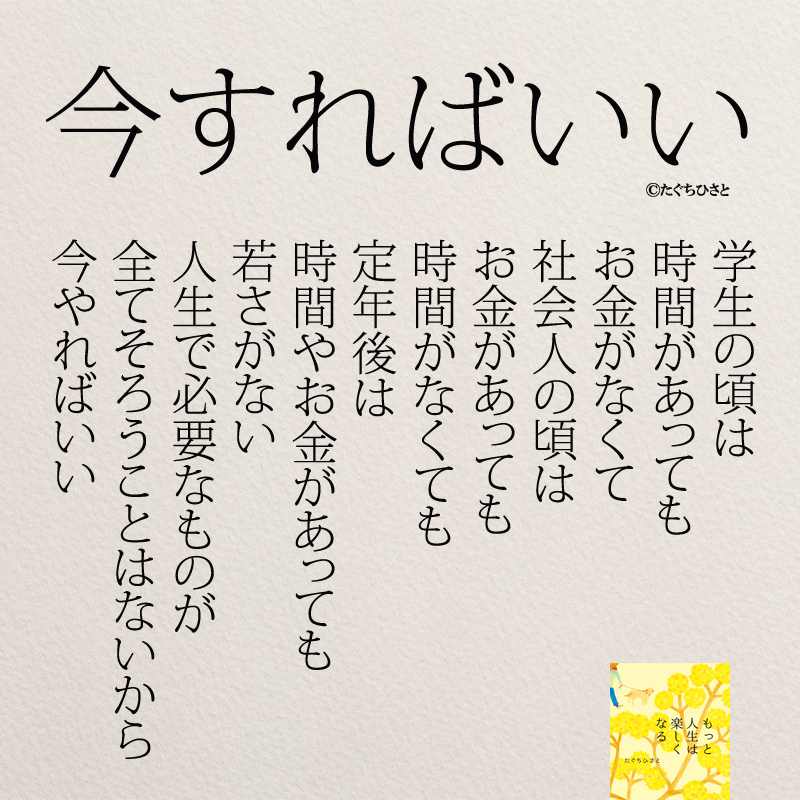 今すればいい
©たぐちひさと
学生の頃は
時間があっても
お金がなくて
社会人の頃は
お金があっても
時間がなくても
定年後は
時間やお金があっても
若さがない
人生で必要なものが
全てそろうことはないから
今やればいい
もっと
人生は
楽しく
なる
たぐちひさと